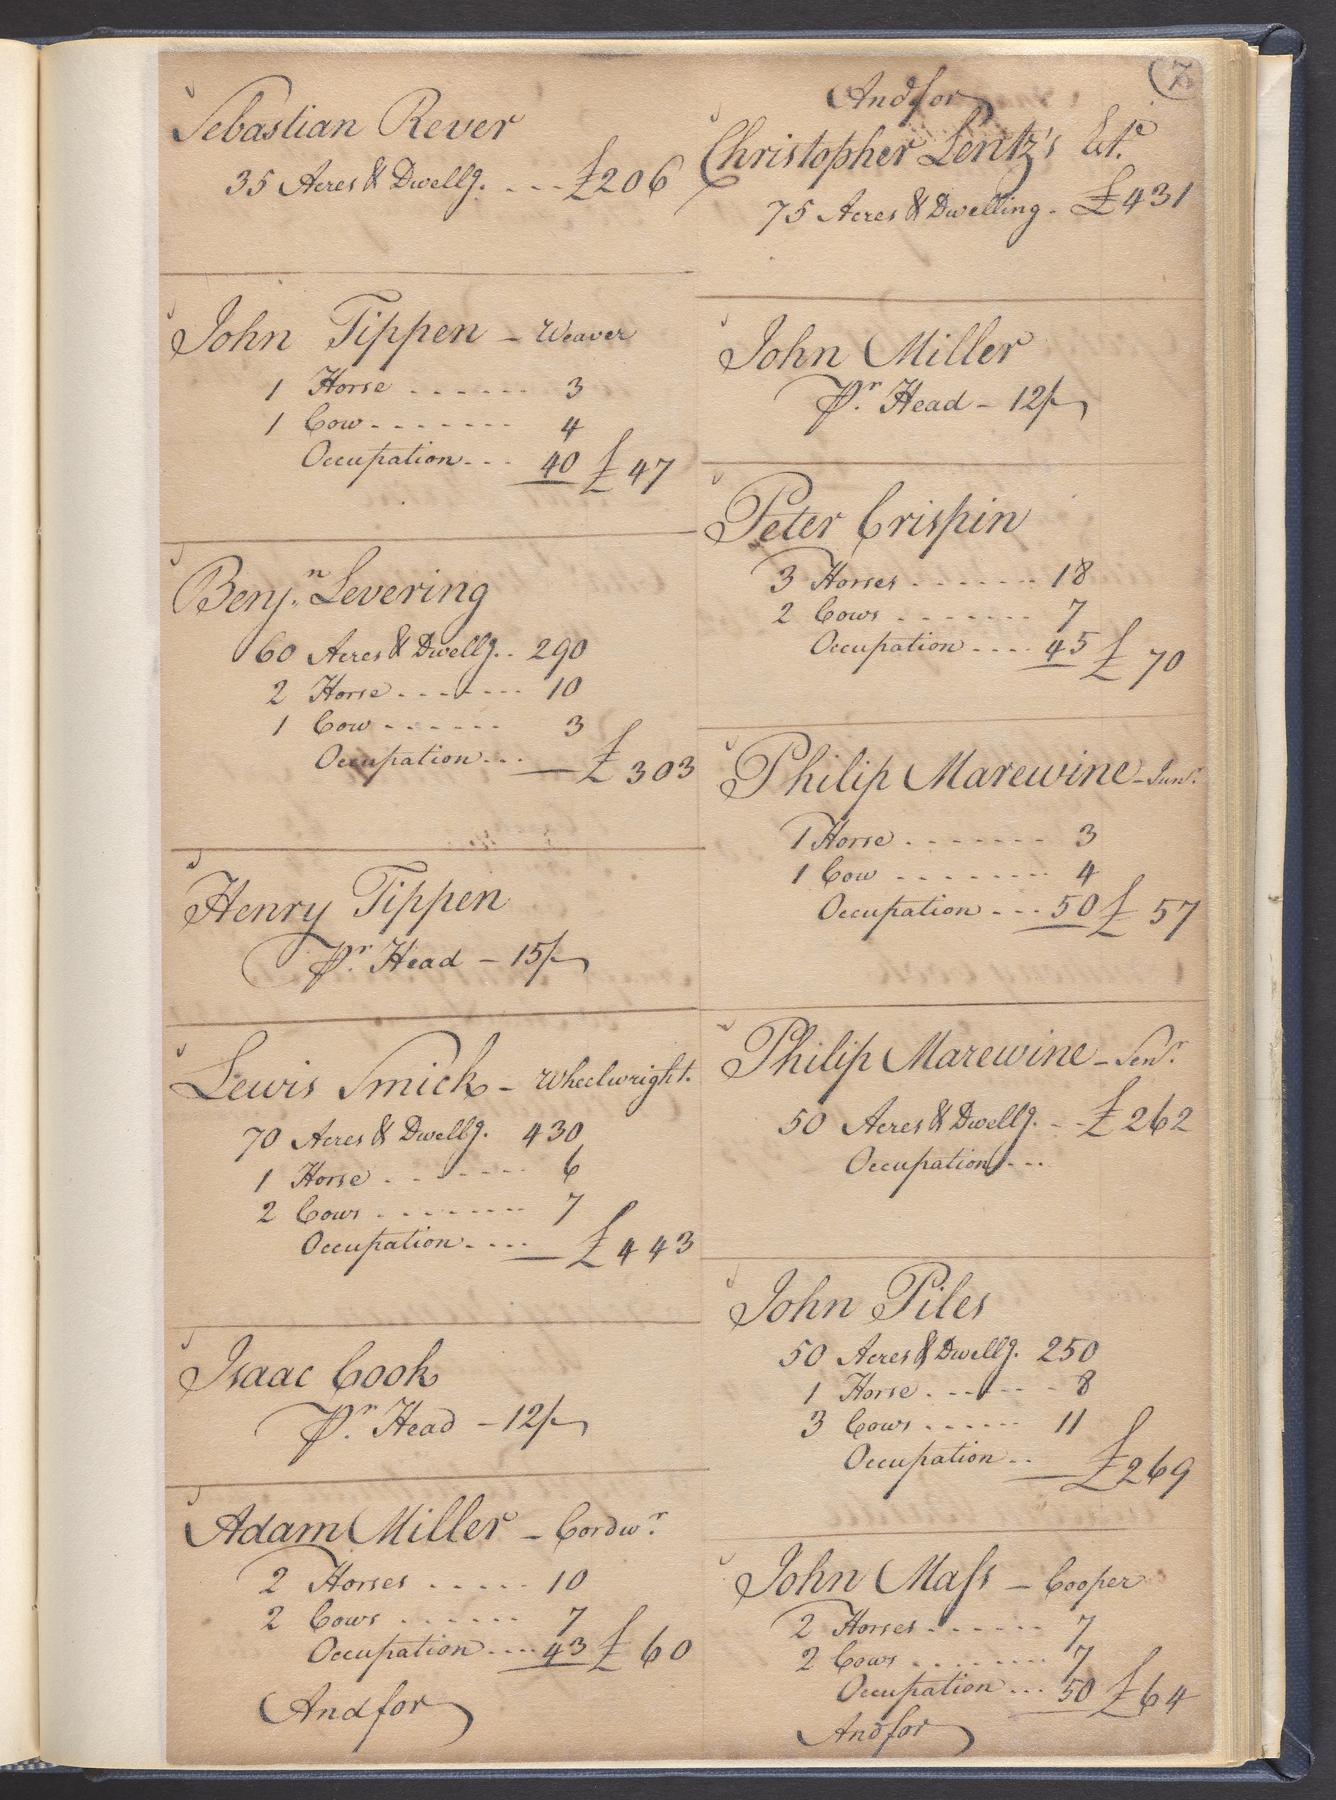 Sebastian Rever
35 Acres & Dwellg. - - - £206
John Tippen - Weaver
1 Horse - - - - - - 3
1 Cow - - - - - - - 4
Occupation - - - 40 £ 47
Benjn. Levering
60 Acres & Dwellg. - - 290
2 Horse - - - - - - - 10
1 Cow - - - - - - 3
Occupation - - - £ 303
Henry Tippen
Pr. Head - 15/-
Lewis Smick - Wheelwright.
70 Acres & Dwellg. 430
1 Horse - - - - - - - 6
2 Cows - - - - - - - - 7
Occupation - - - - £ 443
Isaac Cook
Pr. Head - 12/-
Adam Miller - Cordwr.
2 Horses - - - - - 10
2 Cows - - - - - - 7
Occupation - - - - 43 £ 60
And for
7
And for
Christopher Lentz's Este.
75 Acres & Dwelling - £431
John Miller
Pr. Head - 12/-
Peter Crispin
3 Horses - - - - - - - 18
2 Cows - - - - - - - 7
Occupation - - - - 45 £ 70
Philip Marewine - Junr.
1 Horse - - - - - - - - 3
1 Cow - - - - - - - - - 4
Occupation - - - 50 £ 57
Philip Marewine - Senr.
50 Acres & Dwellg. - - £262
Occupation - - -
John Piles
50 Acres & Dwellg. 250
1 Horse - - - - - - 8
3 Cows - - - - - - 11
Occupation - - £269
John Mass - Cooper
2 Horses - - - - - - 7
2 Cows - - - - - - - - 7
Occupation - - - 50 £64
And for